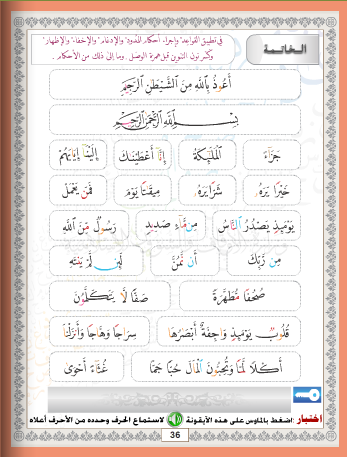 الخاتمة
في تطبيق القواعد وإجراء أحكام المدود والإدغام والإخفاء والإظهار
وكسر نون التنوين قبل همزة الوصل. وما إلى ذلك من الأحكام.
أَعُوذُ بِاللَّهِ مِنَ الشَّيْطَٰنِ الرَّجِيمِ
بِسْمِ اللَّهِ الرَّحْمَٰنِ الرَّحِيمِ
جَزَآءً الْمَلَٰٓئِكَةُ إِنَّآ أَعْطَيْنَٰكَ إِلَيْنَآ إِيَابَهُمْ
خَيْرًا يَرَهُۥ شَرًّا يَرَهُۥ مِيقَٰتًا يَوْمَ فَمَن يَعْمَلْ
يَوْمَئِذٍ يَصْدُرُ النَّاسُ مِن مَّآءٍ صَدِيدٍ رَسُولٌ مِّنَ اللَّهِ
مِن رَّبِّكَ لَئِن لَّمْ يَنتَهِ
صُحُفًا مُّطَهَّرَةً صَفًّا لَّا يَتَكَلَّمُونَ
قُلُوبٌ يَوْمَئِذٍ وَاجِفَةٌ أَبْصَٰرُهَا سِرَاجًا وَهَّاجًا وَأَنزَلْنَا
أَكْلًا لَّمًّا وَتُحِبُّونَ الْمَالَ حُبًّا جَمًّا غُثَآءً أَحْوَىٰ
اختبار: اضغط بالماوس على هذه الأيقونة لاستماع الحرف وحده من الأحرف أعلاه
36